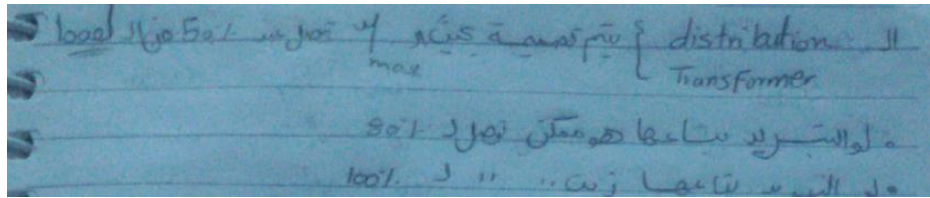 ال distribution Transformer { يتم تصميمة بحيث η max تحصل عند 50% من ال load
• لو التبريد بتاعها هو ممكن توصل ل 80%
• لو التبريد بتاعها زيت ,, ,, ل 100%